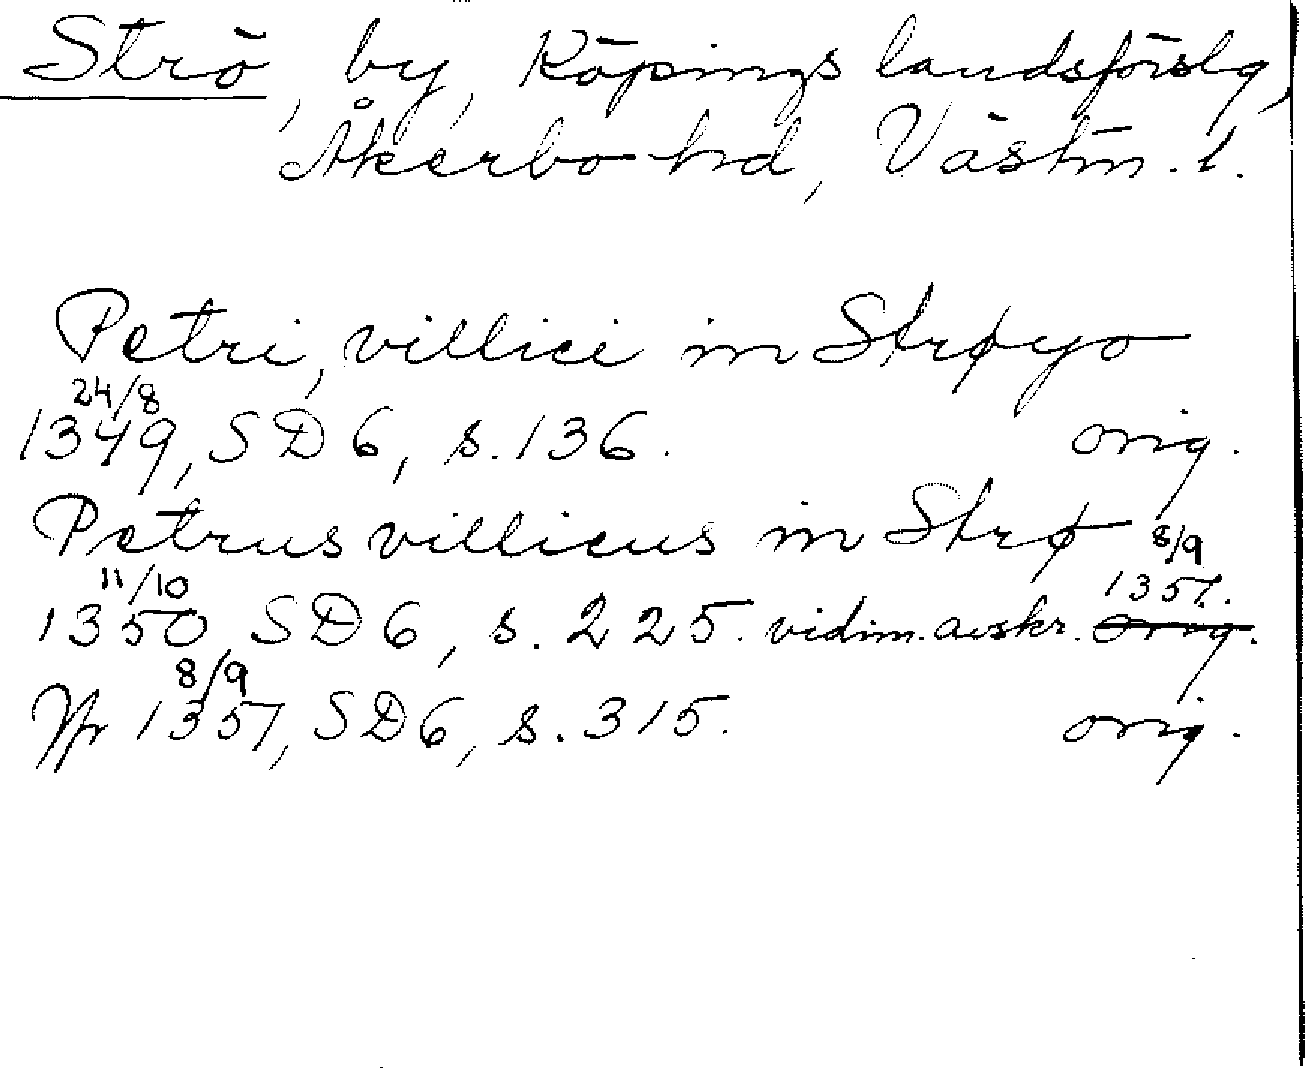 Strö, by, Köpings landsförslg,
Åkerbo hd, Västm. l.
Petri, villici in Strøyo
24/8
1349, SD 6, s. 136. orig.
Petrus villicus in Strø 8/9
11/10 1351.
1350, SD 6, s. 225. vidim. avskr. orig.
8/9
1351, SD 6, s. 315. orig.